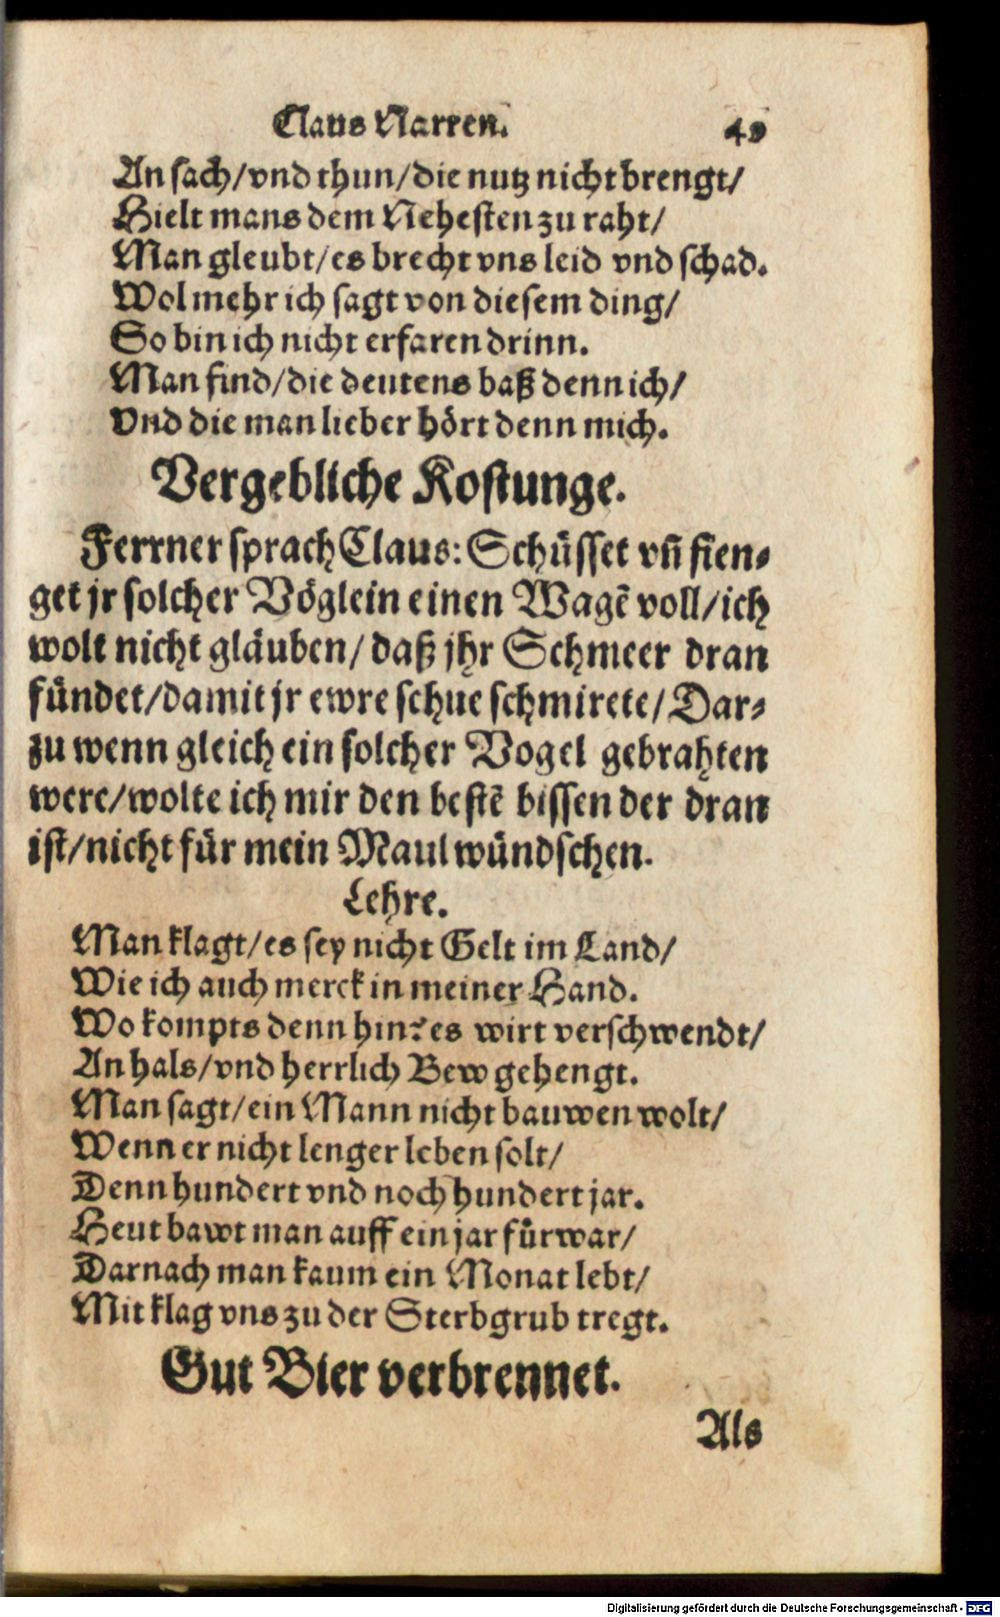 Claus Narren. 49
An sach/vnd thun/die nutz nicht brengt/
Hielt mans dem Nehesten zu raht/
Man gleubt/es brecht vns leid vnd schad.
Wol mehr ich sagt von diesem ding/
So bin ich nicht erfaren drinn.
Man find/die deutens baß denn ich/
Vnd die man lieber hört denn mich.
Vergebliche Kostunge.
Ferrner sprach Claus: Schüsset vñ fien⸗
get jr solcher Vöglein einen Wagẽ voll/ich
wolt nicht gläuben/ daß jhr Schmeer dran
fündet/damit jr ewre schue schmirete/Dar⸗
zu wenn gleich ein solcher Vogel gebrahten
were/wolte ich mir den bestẽ bissen der dran
ist/nicht für mein Maul wündschen.
Lehre.
Man klagt/es sey nicht Gelt im Land/
Wie ich auch merck in meiner Hand.
Wo kompts denn hin? es wirt verschwendt/
An hals/vnd herrlich Bew gehengt.
Man sagt/ein Mann nicht bauwen wolt/
Wenn er nicht lenger leben solt/
Denn hundert vnd noch hundert jar.
Heut bawt man auff ein jar fürwar/
Darnach man kaum ein Monat lebt/
Mit klag vns zu der Sterbgrub tregt.
Gut Bier verbrennet.
Als
Digitalisierung gefördert durch die Deutsche Forschungsgemeinschaft - DFG